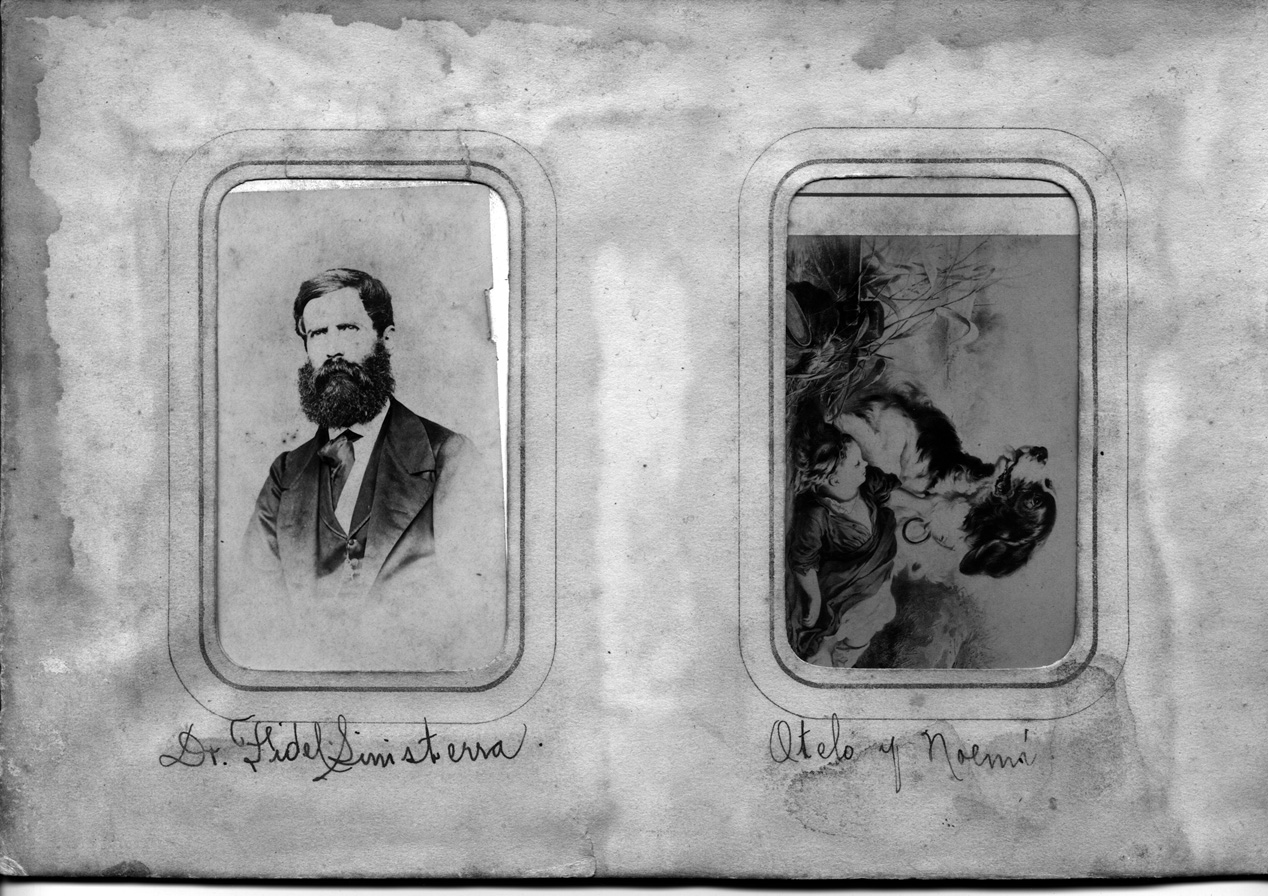 Dr. Fidel Sinisterra.
Otelo y Noemí